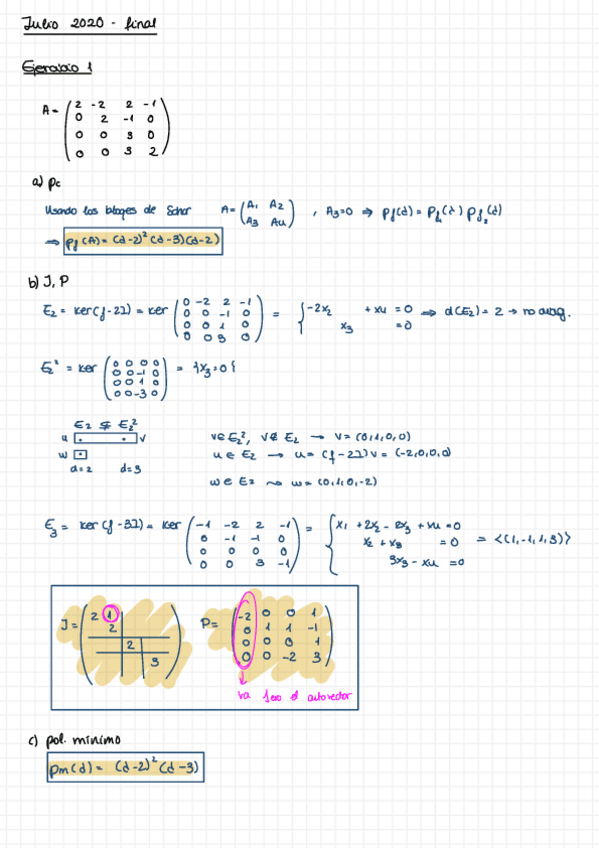 Julio 2020 - final
Ejercicio 1
A = ( 2 -2 2 -1
0 2 -1 0
0 0 3 0
0 0 3 2 )
a) pc
Usando los bloques de A = ( A1 A2 / A3 A4 ) , A3=0 ⇒ pf(λ) = pf1(λ) pf2(λ)
⇒ pf(λ) = (λ-2)² (λ-3)(λ-2)
b) J, P
E2 = ker(f-2I) = ker ( 0 -2 2 -1 / 0 0 -1 0 / 0 0 1 0 / 0 0 3 0 ) = { -2x2 + x4 = 0 / x3 = 0 ⇒ d(E2) = 2 → no diag.
E2² = ker ( 0 0 0 0 / 0 0 -1 0 / 0 0 1 0 / 0 0 -3 0 ) = {x3=0}
E2 ⊊ E2²
u v
w
d=2 d=3
v∈E2², v∉E2 → v = (0,1,0,0)
u∈E2 → u = (f-2I)v = (-2,0,0,0)
w∈E2 ⇝ w = (0,1,0,-2)
E3 = ker(f-3I) = ker ( -1 -2 2 -1 / 0 -1 -1 0 / 0 0 0 0 / 0 0 3 -1 ) = { x1 + 2x2 - 2x3 + x4 = 0 / x2 + x3 = 0 / 3x3 - x4 = 0 = <(1,-1,1,3)>
J = ( 2 1 / 2 / 2 / 3 ) P = ( -2 0 0 1 / 0 1 1 -1 / 0 0 0 1 / 0 0 -2 3 )
va el autovector
c) pol. mínimo
pm(λ) = (λ-2)² (λ-3)